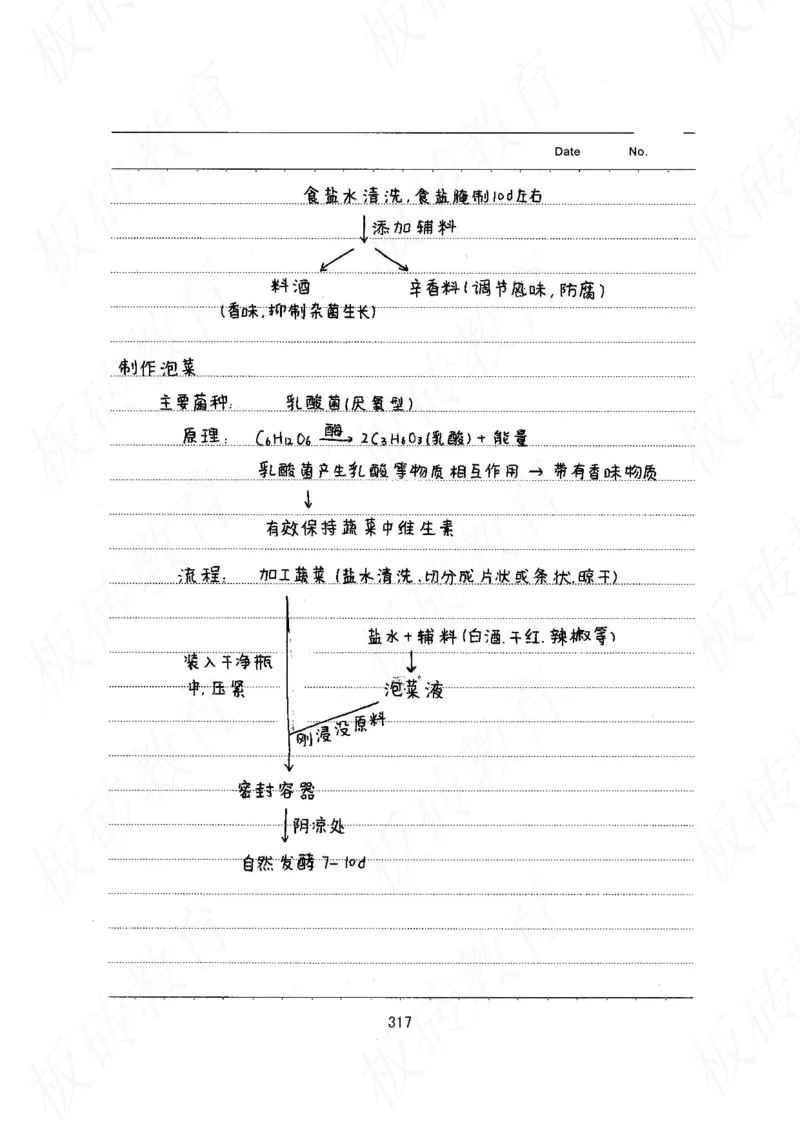 Date No.
食盐水清洗,食盐腌制10d左右
添加辅料
料酒 辛香料(调节风味,防腐)
(香味,抑制杂菌生长)
制作泡菜
主要菌种: 乳酸菌(厌氧型)
原理: C6H12O6 酶→ 2C3H6O3(乳酸)+能量
乳酸菌产生乳酸等物质相互作用→带有香味物质
↓
有效保持蔬菜中维生素
流程: 加工蔬菜(盐水清洗、切分成片状或条状,晾干)
盐水+辅料(白酒.干红.辣椒等)
装入干净瓶
中,压紧
泡菜液
刚浸没原料
密封容器
阴凉处
自然发酵7-10d
317
板砖教育